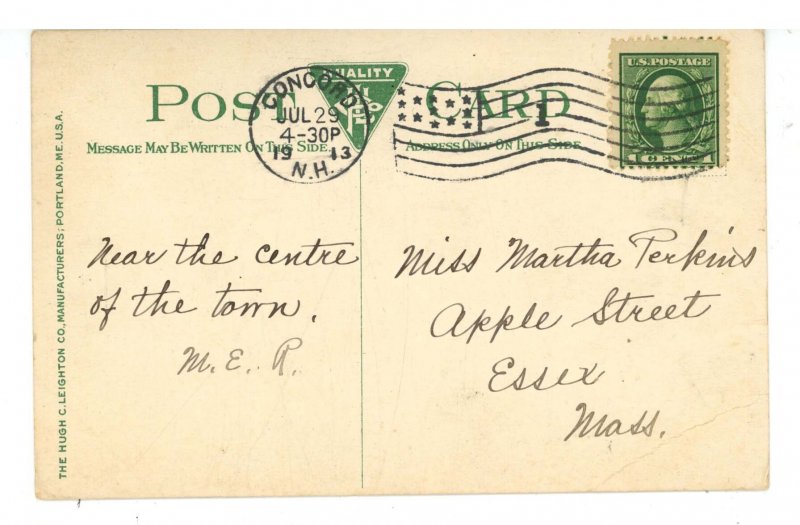 POST CARD
QUALITY
CONCORD
JUL 29
4-30P
19 13
N.H.
1
U.S. POSTAGE
MESSAGE MAY BE WRITTEN ON THIS SIDE.
ADDRESS ONLY ON THIS SIDE
THE HUGH C. LEIGHTON CO., MANUFACTURERS; PORTLAND, ME. U.S.A.
Near the centre
of the town.
M. E. R.
Miss Martha Perkins
Apple Street
Essex
Mass.